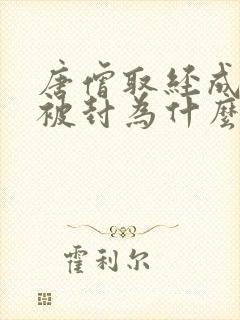 唐僧取経成
被封為什麼
霍利尔